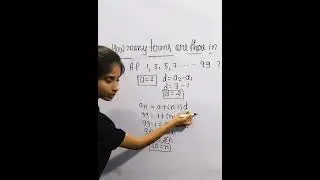 How many terms are there in
AP 1, 3, 5, 7 ...... 99 ?
a=1 d=a₂-a₁
d= 3-1
d=2
an = a+(n-1)d
99 = 1+(n-1)
99-1 =